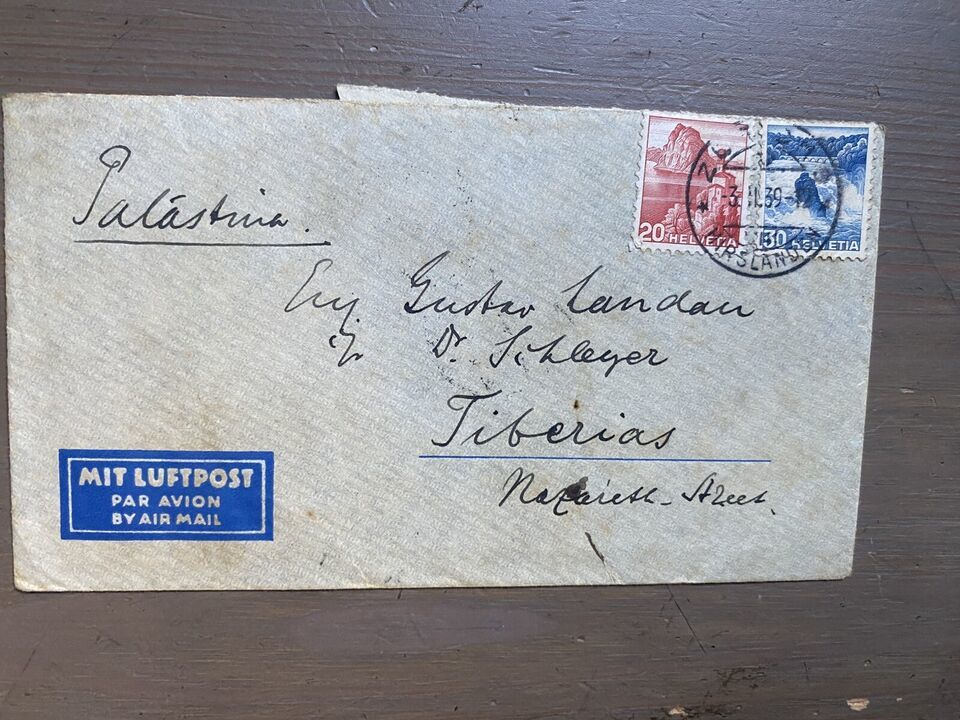 Palästina.
20 HELVETIA
30 HELVETIA
-3. II. 39-
Ing. Gustav Landau
c/o Dr. Schleyer
Tiberias
Nazareth-Street.
MIT LUFTPOST
PAR AVION
BY AIR MAIL